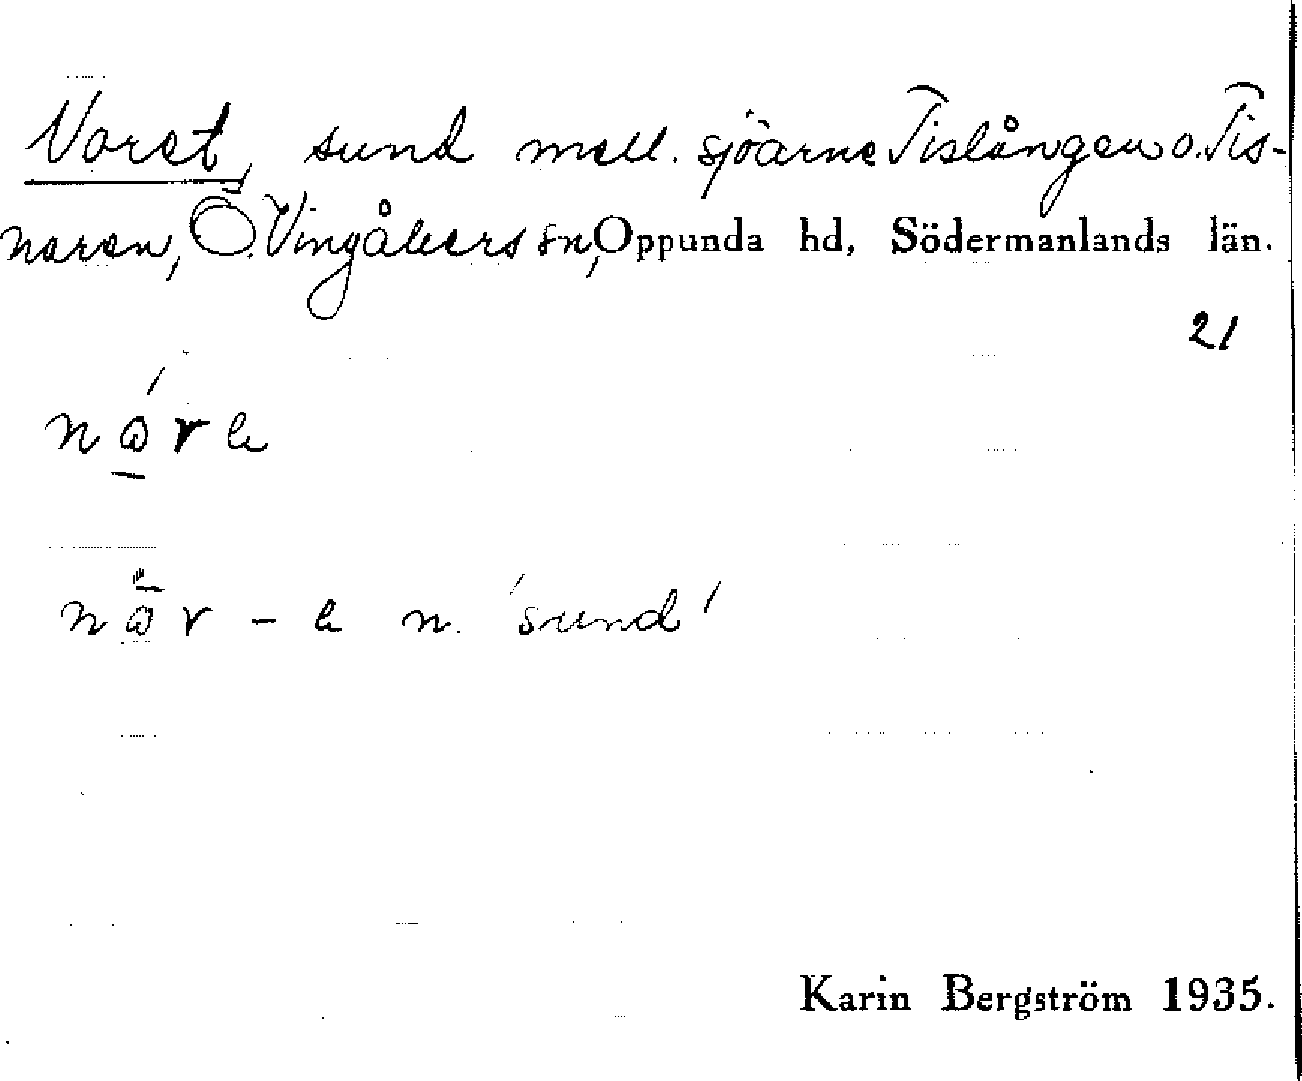 Noret, sund mell. sjöarna Tislången o. Tis-
naren, Ö. Vingåkers sn, Oppunda hd, Södermanlands län.
21
n. 'sund'
Karin Bergström 1935.